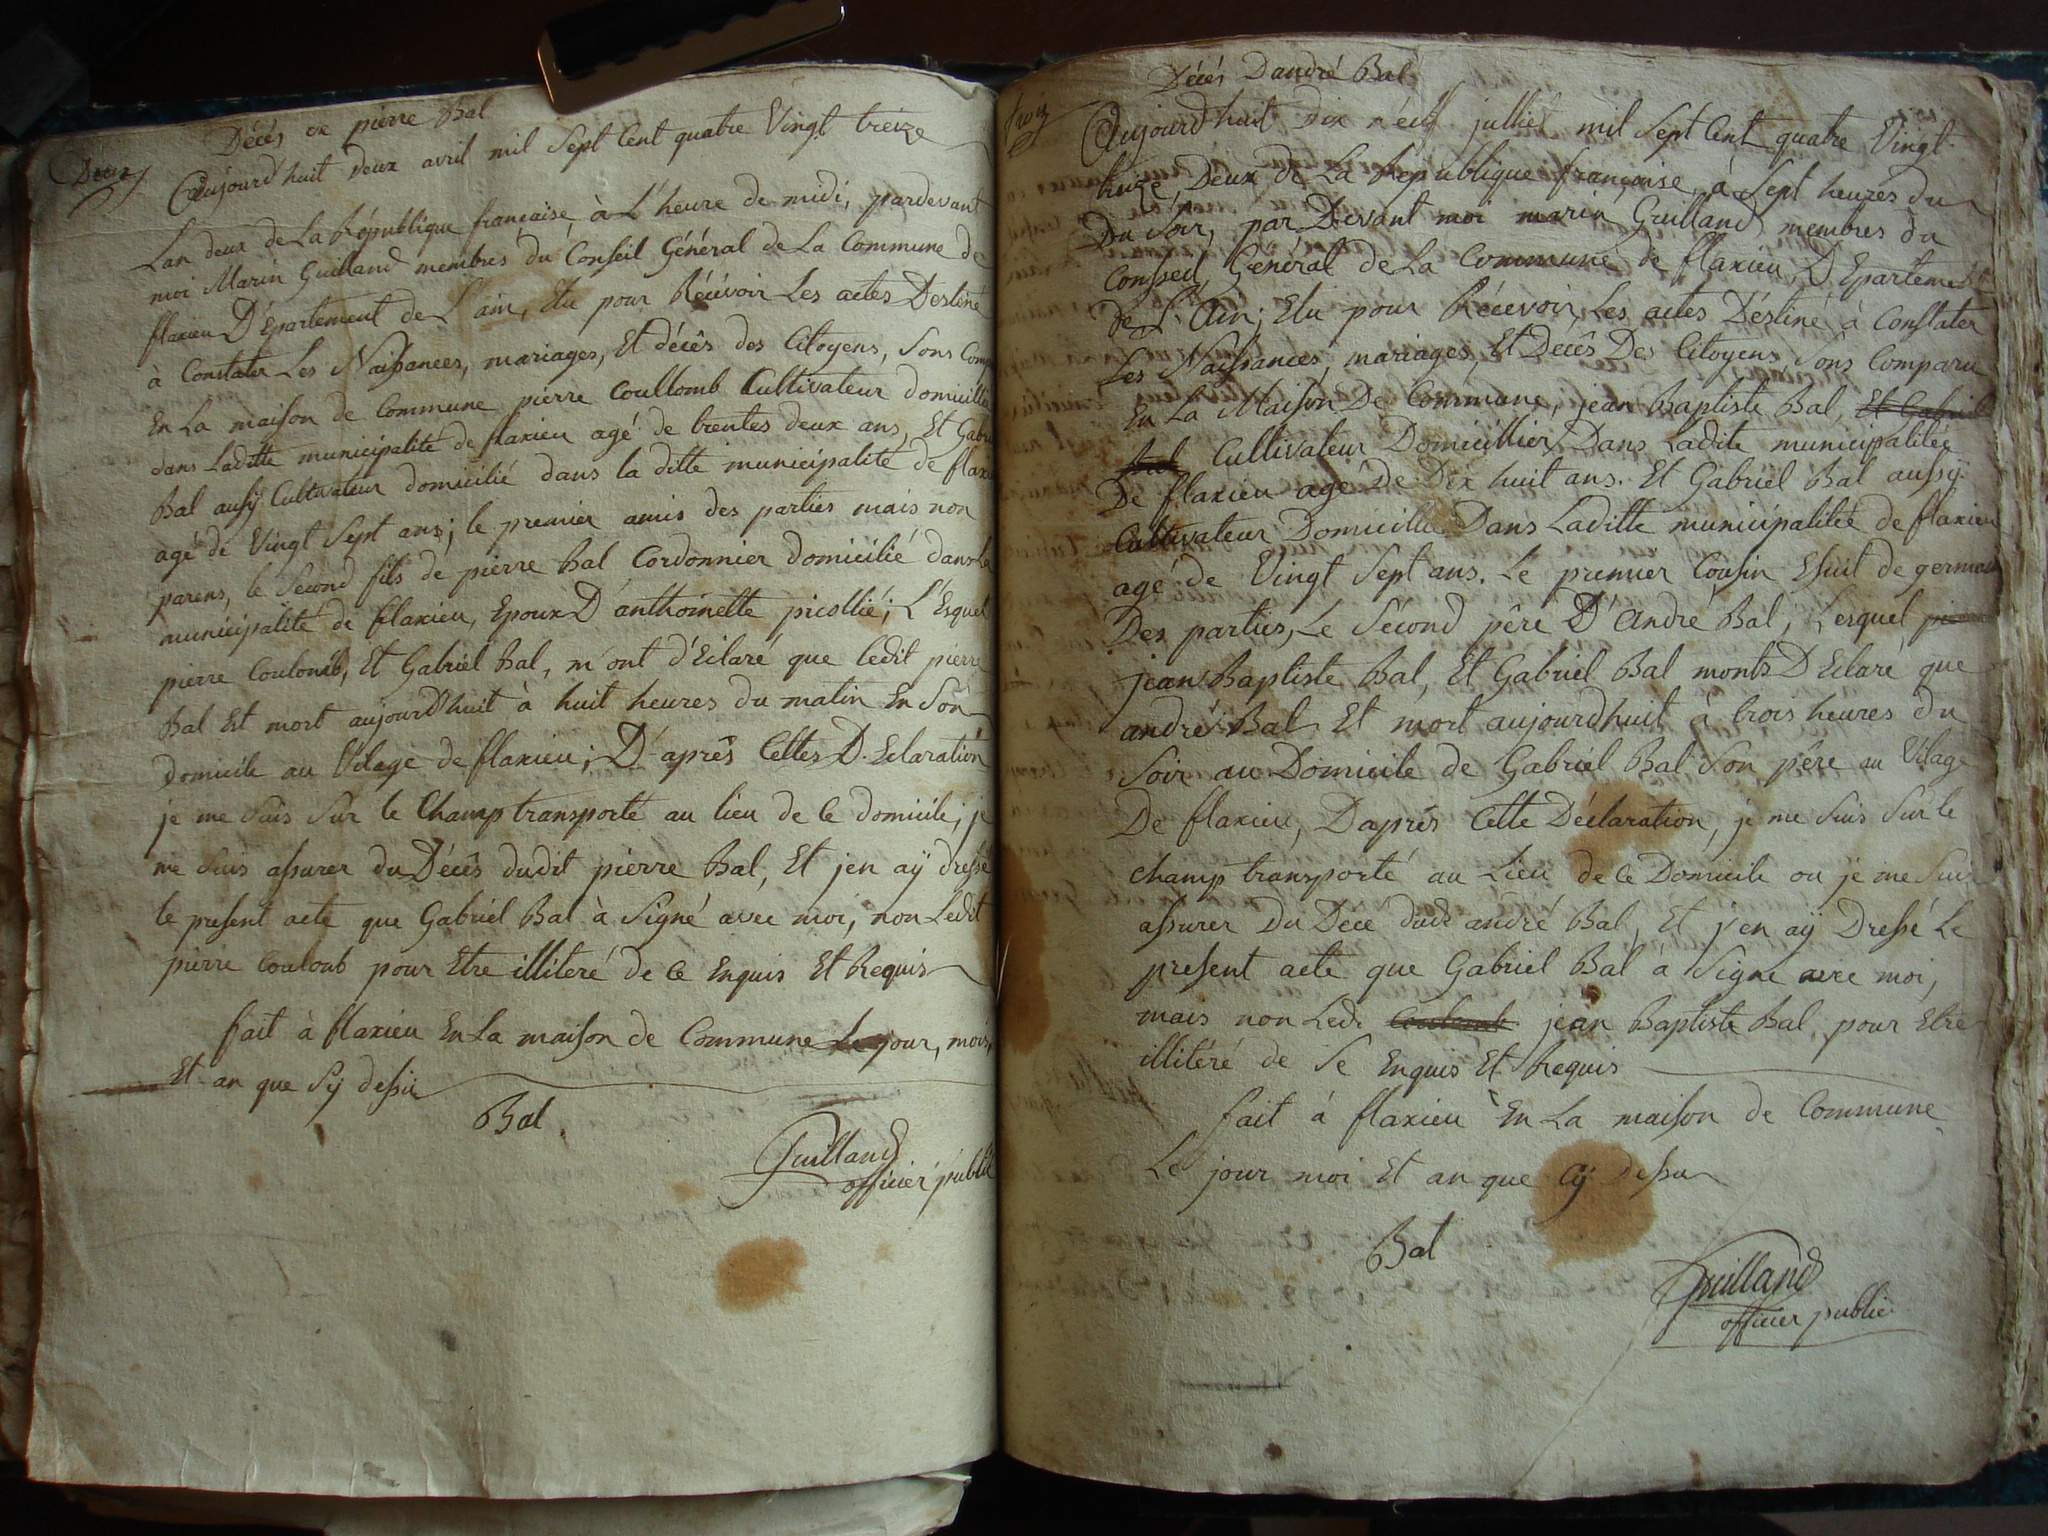 Deux
Décès de pierre Bal
Aujourd'huit deux avril mil Sept Cent quatre Vingt treize
Lan deux de La République française à L'heure de midi, pardevant
moi Marin Guilland membres du Conseil Général de La Commune de
flaxieu D'Epartement de L'ain, Elu pour Récévoir Les actes Destiné
à Constater Les Naissances, mariages, Et décès des Citoyens, Sons Comp
En La maison de Commune pierre Coullomb Cultivateur domicillie
dans Laditte municipalité de flaxieu agé de trentes deux ans, Et Gabri
Bal aussÿ Cultivateur domicilié dans la ditte municipalité de flaxi
agé de Vingt Sept ans; le premier amis des parties mais non
parens, le Sécond fils de pierre Bal Cordonnier domicilié dans La
municipalité de flaxieu, Epoux D'anthoinette picollié; L'Esquel
pierre Coulomb, Et Gabriel Bal, m'ont d'Eclaré que ledit pierre
Bal Est mort aujourd'huit à huit heures du matin En Son
domicile au Vilage de flaxieu; D'après Celtes D.Eclaration
je me Suis Sur le Champ transporté au lieu de Ce domicile, je
me Suis assurer du Décès dudit pierre Bal, Et j'en aÿ dressé
le présent acte que Gabriel Bal à Signé avec moi, non Ledit
pierre Couloub pour Etre illitéré de Ce Enquis Et Requis
fait à flaxieu En La maison de Commune Le jour, mois,
Et an que Sÿ dessu
Bal
Guilland
officier public
trois
Décés D'andré Bal
Aujourd'huit Dix néuf julliet mil Sept Cent quatre Vingt
treize, Deux de La République française, à Sept heures du
Du Soir, par Devant moi marin Guilland membres du
Conseil Général de La Commune de flaxieu D'Epartement
de L'Ain; Elu pour Récevoir Les actes Déstiné à Constater
Les Naissances, mariages, Et Décès Des Citoyens, Sons Comparu
En La Maison De Commune, jean Baptiste Bal, Et Gabriel
Bal Cultivateur Domicillier Dans Ladite municipalitée
De flaxieu agé De Dix huit ans. Et Gabriel Bal aussÿ
Cultivateur Domicillie Dans Laditte municipalitée de flaxieu
agé de Vingt Sept ans. Le premier Cousin Esuit de germain
Des parties, Le Sécond père D'André Bal, Lesquel
jean Baptiste Bal, Et Gabriel Bal monts D'Eclaré que
andré Bal Et mort aujourdhuit à trois heures du
Soir au Domicile de Gabriel Bal Son père au Vilage
De flaxieu, D'après Cette Déclaration, je me Suis Sur le
champ transporté au Lieu de Ce Domicile ou je me Suis
assurer Du Décé dudi andré Bal, Et j'en aÿ Dressé Le
présent acte que Gabriel Bal à Signé avec moi,
mais non Ledi Coulomb jean Baptiste Bal, pour Etre
illitéré de Se Enquis Et Requis
fait à flaxieu En La maison de Commune
Le jour moi Et an que Cÿ dessu
Bal
Guilland
officier public